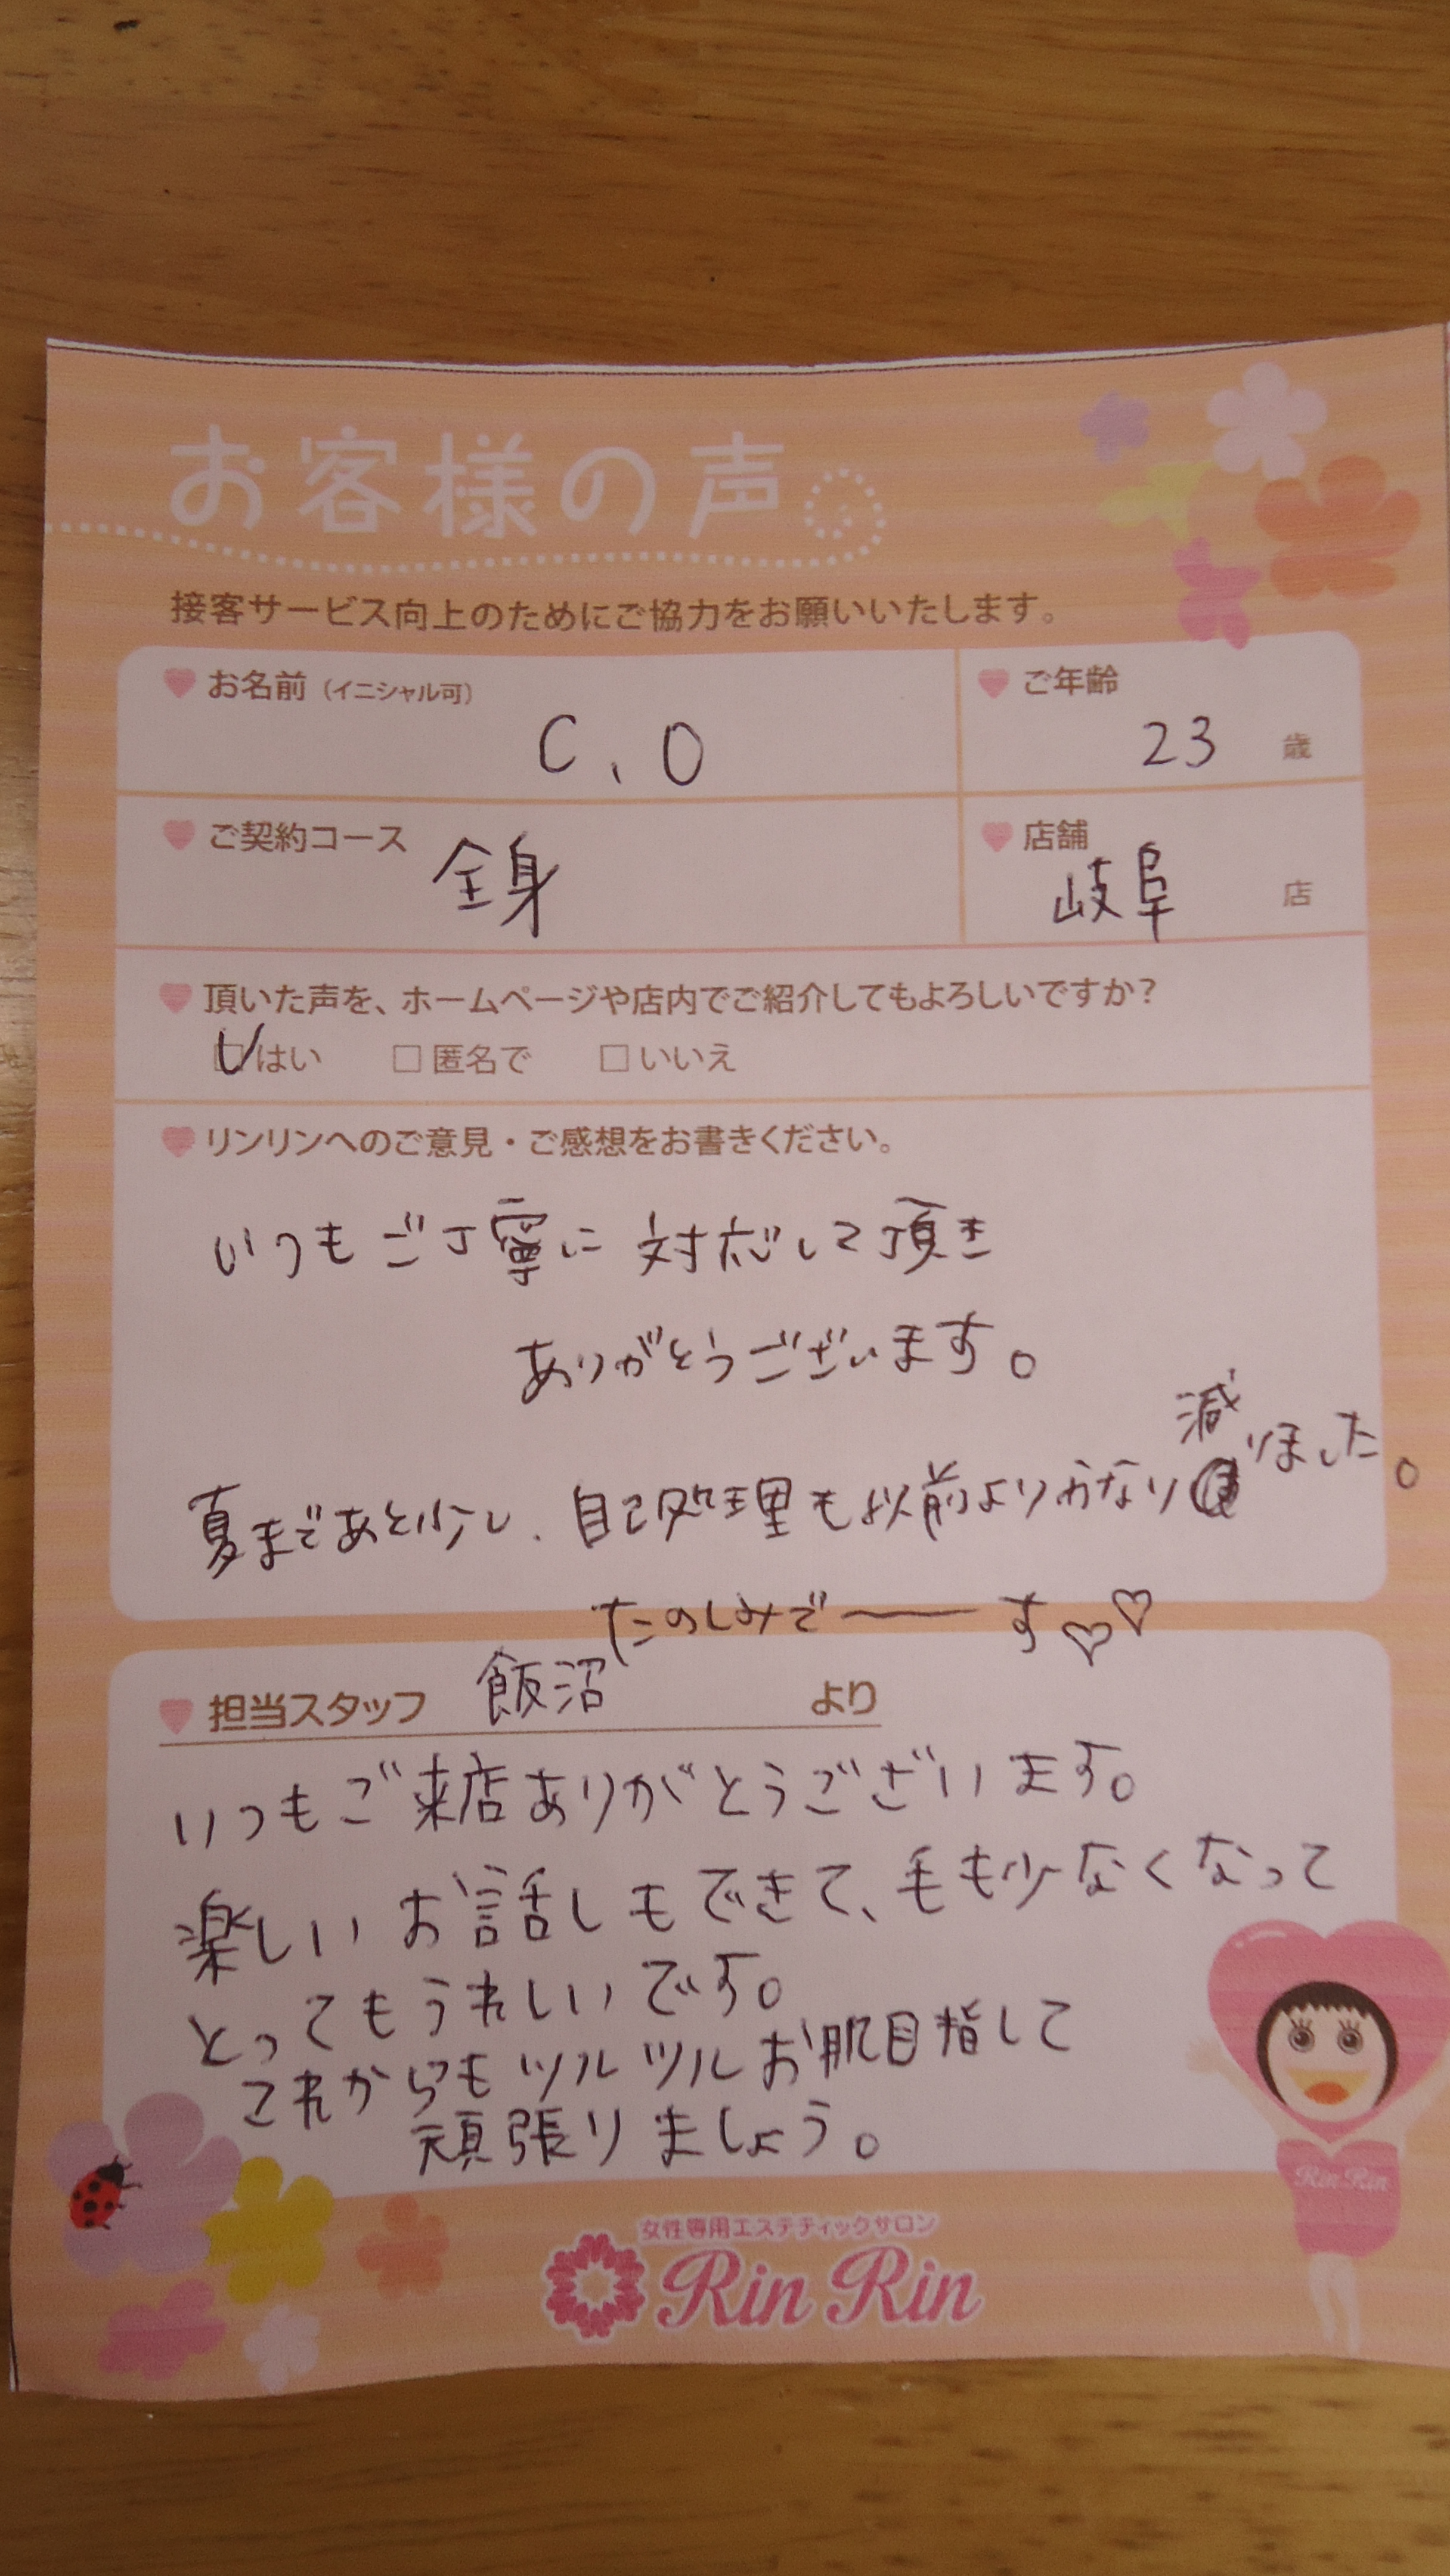 お客様の声。
接客サービス向上のためにご協力をお願いいたします。
お名前（イニシャル可）
C、O
ご年齢
23 歳
ご契約コース 全身
店舗
岐阜 店
頂いた声を、ホームページや店内でご紹介してもよろしいですか？
はい □匿名で □いいえ
リンリンへのご意見・ご感想をお書きください。
いつもご丁寧に対応して頂き
ありがとうございます。
夏まであと少し、自己処理も以前よりかなり減りました。
たのしみで――す♡♡
担当スタッフ 飯沼 より
いつもご来店ありがとうございます。
楽しいお話しもできて、毛も少なくなって
とってもうれしいです。
これからもツルツルお肌目指して
頑張りましょう。
Rin Rin
女性専用エステティックサロン
Rin Rin